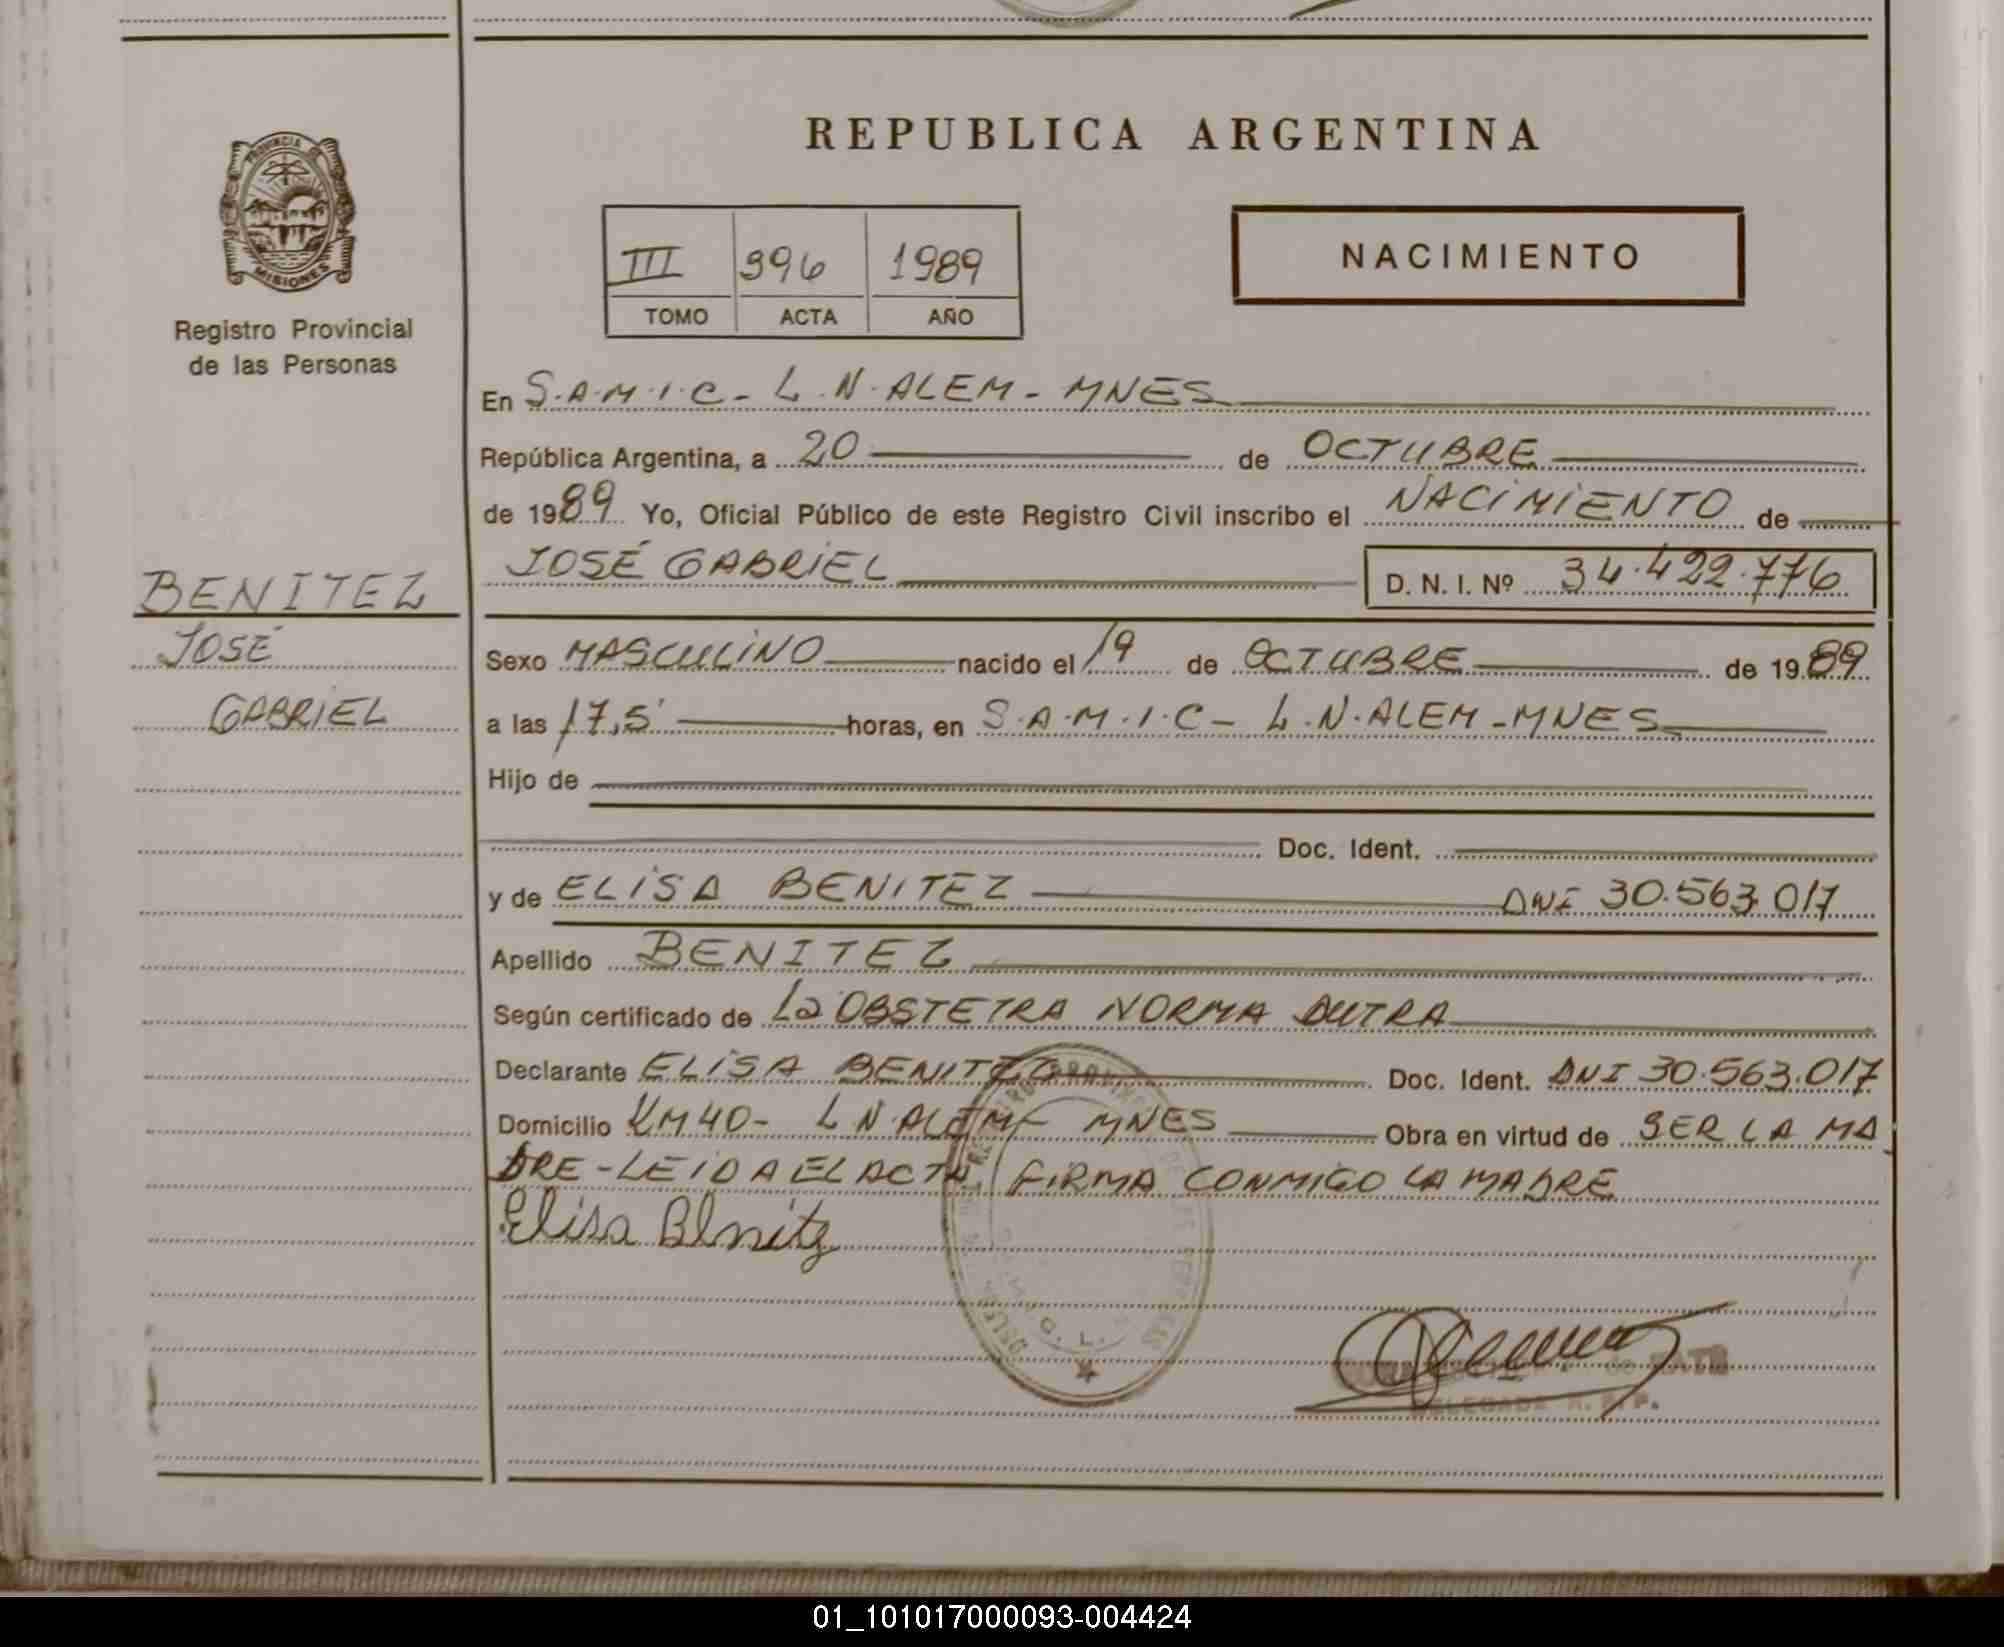 PROVINCIA DE
MISIONES
Registro Provincial
de las Personas
BENITEZ
JOSÉ
GABRIEL
REPUBLICA ARGENTINA
III 396 1989
TOMO ACTA AÑO
NACIMIENTO
En S.A.M.I.C - L.N.ALEM - MNES
República Argentina, a 20 de OCTUBRE
de 1989 Yo, Oficial Público de este Registro Civil inscribo el NACIMIENTO de
JOSÉ GABRIEL D. N. I. Nº 34.422.776
Sexo MASCULINO nacido el 19 de OCTUBRE de 1989
a las 17,5' horas, en S.A.M.I.C - L.N.ALEM - MNES
Hijo de
Doc. Ident.
y de ELISA BENITEZ DNI 30.563.017
Apellido BENITEZ
Según certificado de La OBSTETRA NORMA DUTRA
Declarante ELISA BENITEZ Doc. Ident. DNI 30.563.017
Domicilio KM 40 - L N ALEM - MNES Obra en virtud de SER LA MA
DRE - LEIDA EL ACTA FIRMA CONMIGO LA MADRE
Elisa Benitz
DELEGADA R. P. P.
01_101017000093-004424